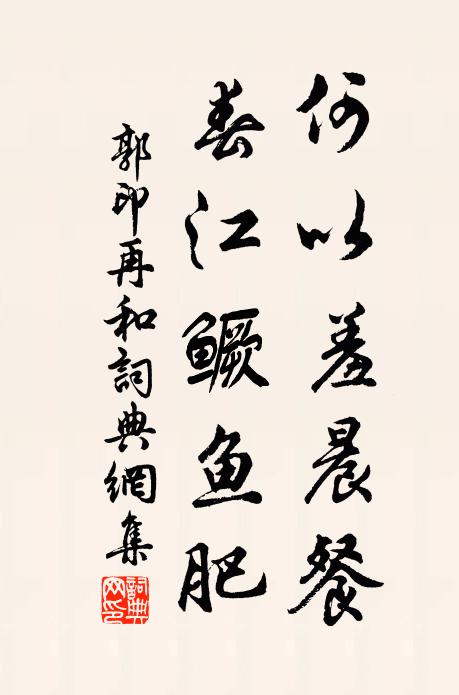 何以羞晨餐
春江鳜鱼肥
郭印再和詞典網集
詞典网印